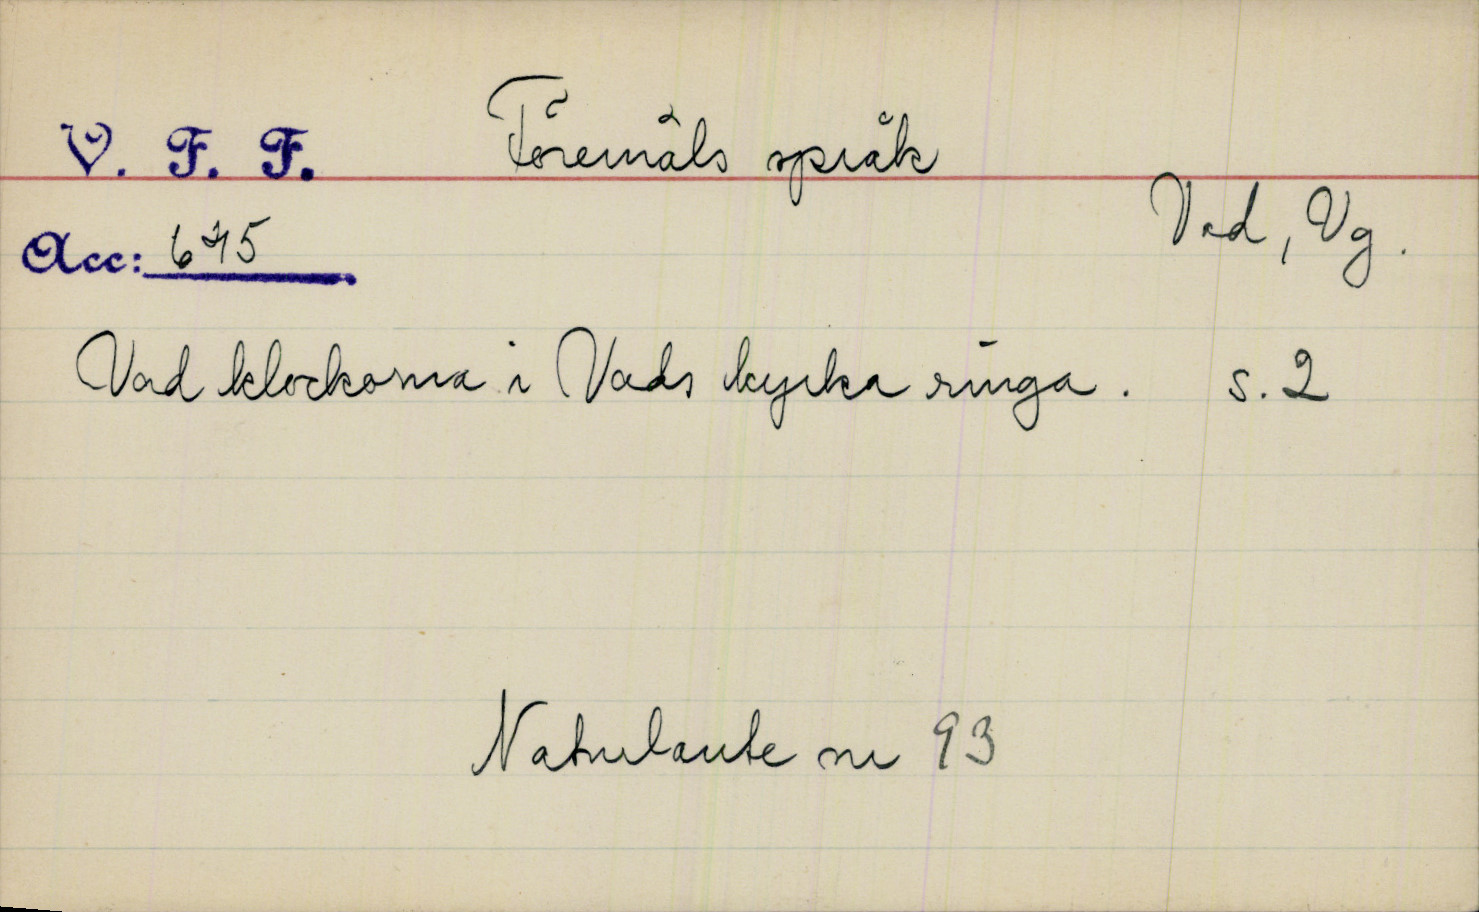 V. F. F. Föremåls språk
Vad, Vg.
Acc: 675
Vad klockorna i Vads kyrka ringa. s. 2
Naturlaute nr 93